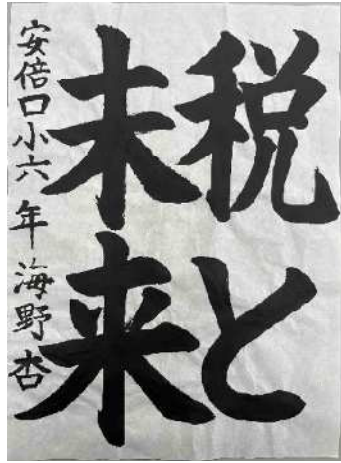 税と
未来
安倍口小六年海野杏